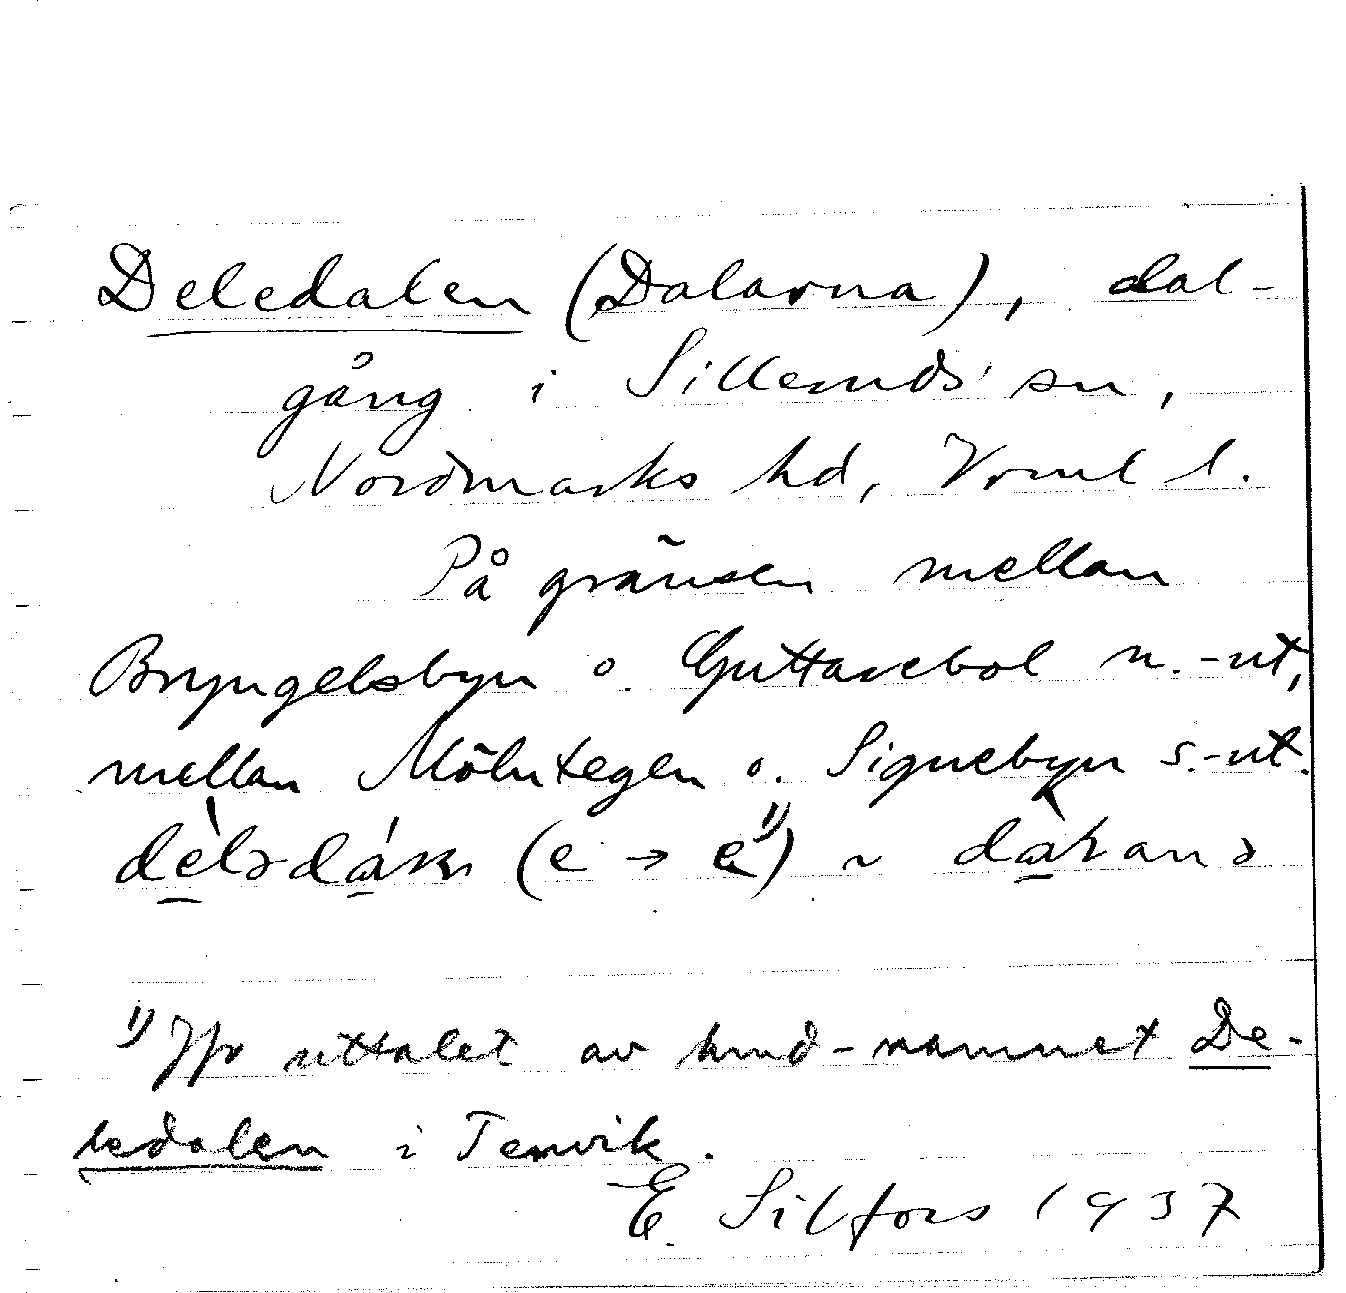 Deledalen (Dalarna), dal-
gång i Silleruds sn,
Nordmarks hd, Vrml l.
På gränsen mellan
Bryngelsbyn o. Guttarebol n.-ut,
mellan Mölntegen o. Signebyn s.-ut.
(e → e̜ ¹⁾) ~
¹⁾ Jfr uttalet av hmd-namnet De-
ledalen i Tenvik.
E. Silfors 1937